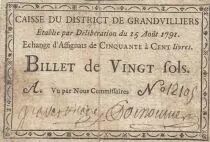 CAISSE DU DISTRICT DE GRANDVILLIERS
Etablie par Déliberation du 25 Août 1791.
Echange d'Assignats de CINQUANTE à CENT livres.
BILLET DE VINGT sols.
A. Vu par Nous Commissaires No 12105